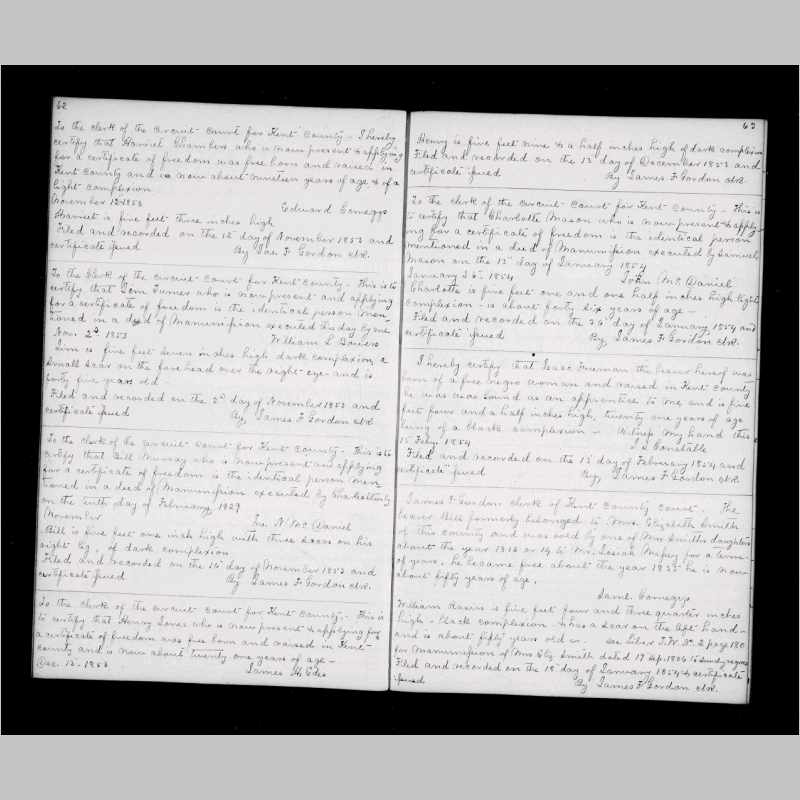 62
To the clerk of the circuit court for Kent County - I hereby
certify that Harriet Chambers who is now present & applying
for a certificate of freedom was free born and raised in
Kent County and is now about nineteen years of age & of a
light complexion
November 12 1853
Edward Comegys
Harriet is five feet three inches high
Filed and recorded on the 12 day of November 1853 and
certificate issued
By Jas F. Gordon clk.
To the clerk of the circuit court for Kent County - This is to
certify that Tom Turner who is now present and applying
for a certificate of freedom is the identical person men
tioned in a deed of Manumission executed this day by me
Nov. 2d 1853
William S.
Tom is five feet seven inches high dark complexion, a
small scar on the fore head over the right eye and is
forty five years old
Filed and recorded on the 2d day of November 1853 and
certificate issued
By James F Gordon clk.
To the clerk of the circuit court for Kent County - This is to
certify that Bill Murray who is now present and applying
for a certificate of freedom is the identical person men
tioned in a deed of Manumission executed by Charles
on the tenth day of February 1829
November
Jno. N McDaniel
Bill is five feet one inch high with three scars on his
right leg, of dark complexion
Filed and recorded on the 15 day of November 1853 and
certificate issued
By James F Gordon clk.
To the clerk of the circuit court for Kent County - This is
to certify that Henry Jones who is now present & applying for
a certificate of freedom was free born and raised in Kent
county and is now about twenty one years of age -
Dec. 13. 1853
James H
63
Henry is five feet nine & a half inches high of dark complexion
Filed and recorded on the 13 day of December 1853 and
certificate issued
By James F Gordon clk.
To the clerk of the circuit court for Kent County - This is
to certify that Charlotte Mason who is now present & apply-
ing for a certificate of freedom is the identical person
mentioned in a deed of Manumission executed by Samuel
Mason on the 12 day of January 1854
January 26. 1854
John McDaniel
Charlotte is five feet one and one half inches high light
complexion - is about forty six years of age -
Filed and recorded on the 26 day of January 1854 and
certificate issued
By James F Gordon clk.
I hereby certify that Isaac Freeman the bearer hereof was
born of a free negro woman and raised in Kent County
he was was bound as an apprentice to me and is five
feet four and a half inches high, twenty one years of age
being of a black complexion - Witness my hand this
15 Feby. 1854
Constable
Filed and recorded on the 15 day of February 1854 and
certificate issued
By James F Gordon clk.
James F Gordon clerk of Kent County court. The
bearer Bill formerly belonged to Mrs. Elizabeth Smith
of this county and was sold by one of Mrs Smiths daughters
about the year 1813 or 14 to Mr. Massey for a term
of years, he became free about the year 1835 he is now
about fifty years of age.
Saml. Comegys
William is five feet four and three quarter inches
high - black complexion & has a scar on the left hand -
and is about fifty years old - see Liber T.W. No. 2 page 180
for Manumission of Mrs Eliz Smith dated 17 Sep. 1806 to sundry negroes
Filed and recorded on the 18 day of January 1854 & certificate
issued
By James F Gordon clk.